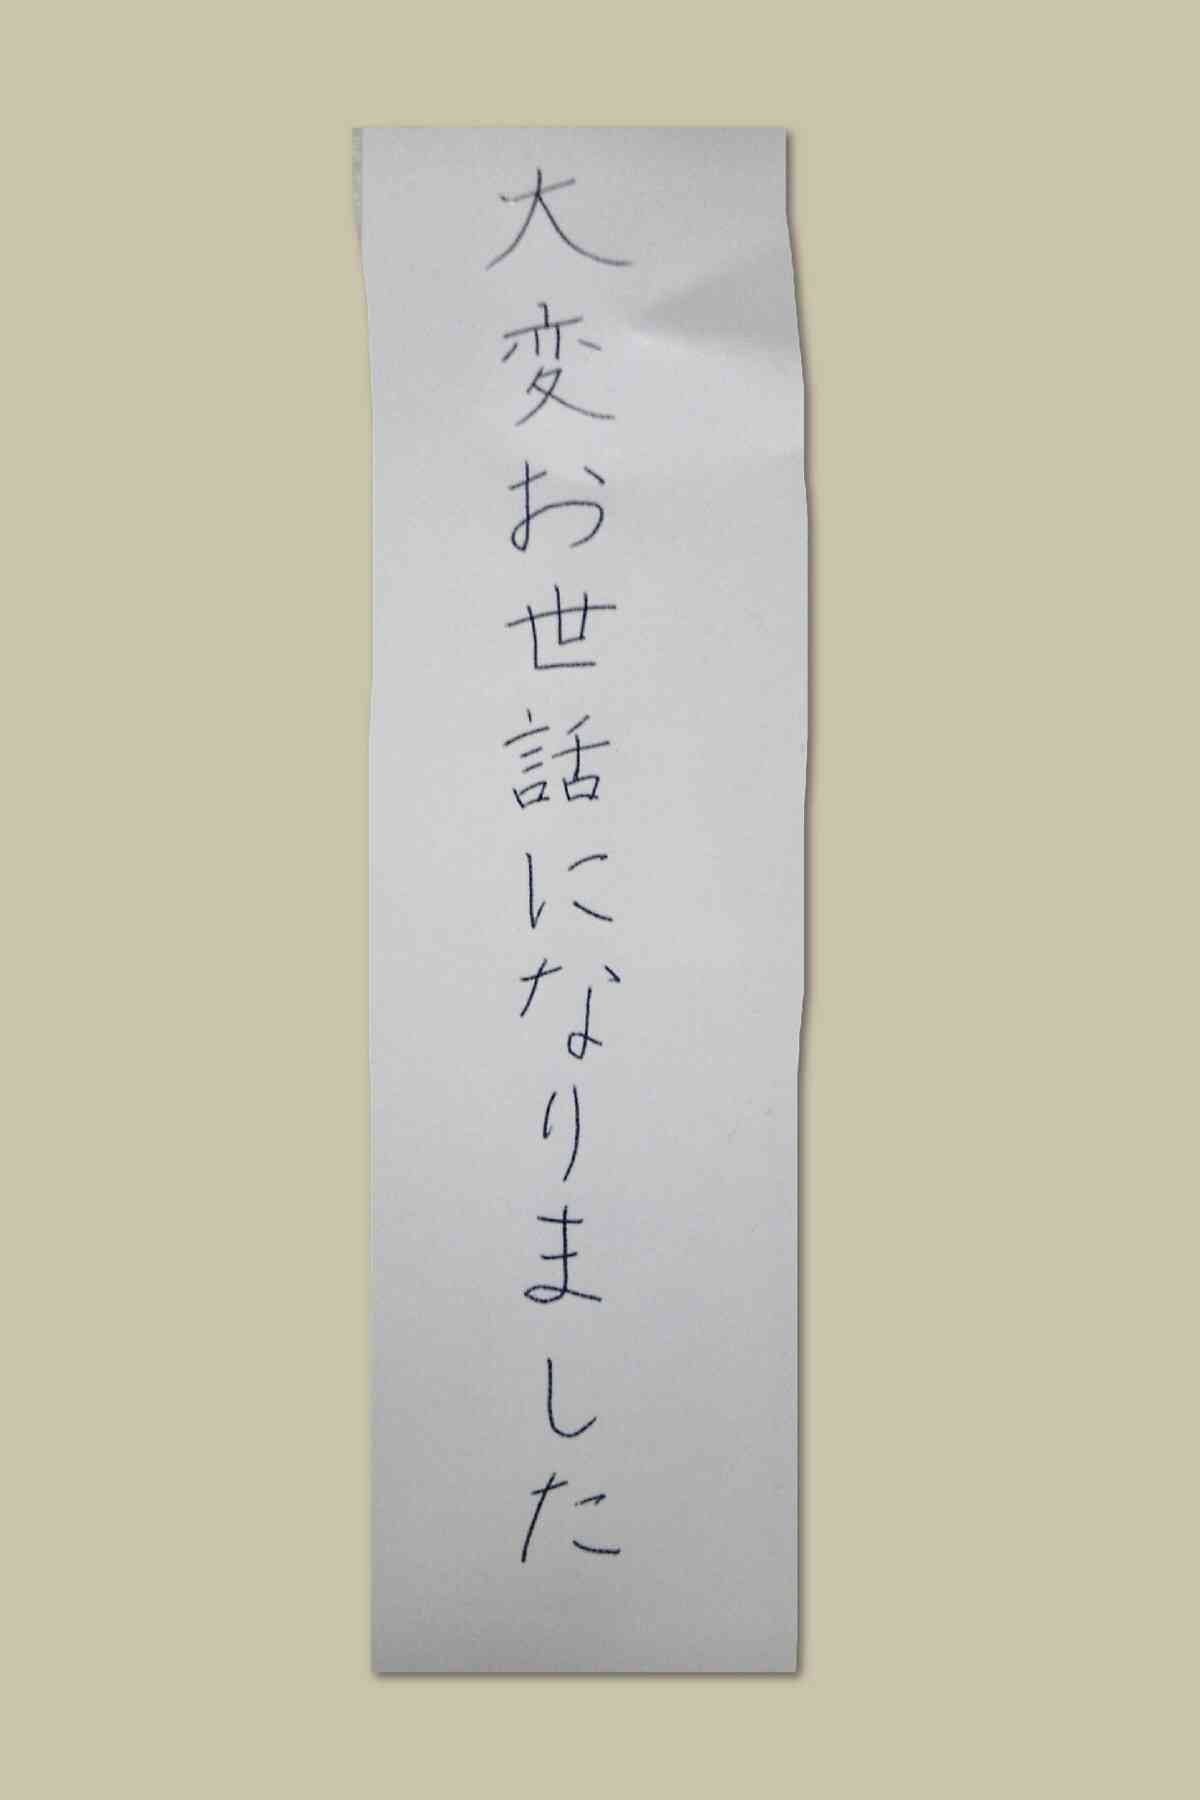 大変お世話になりました